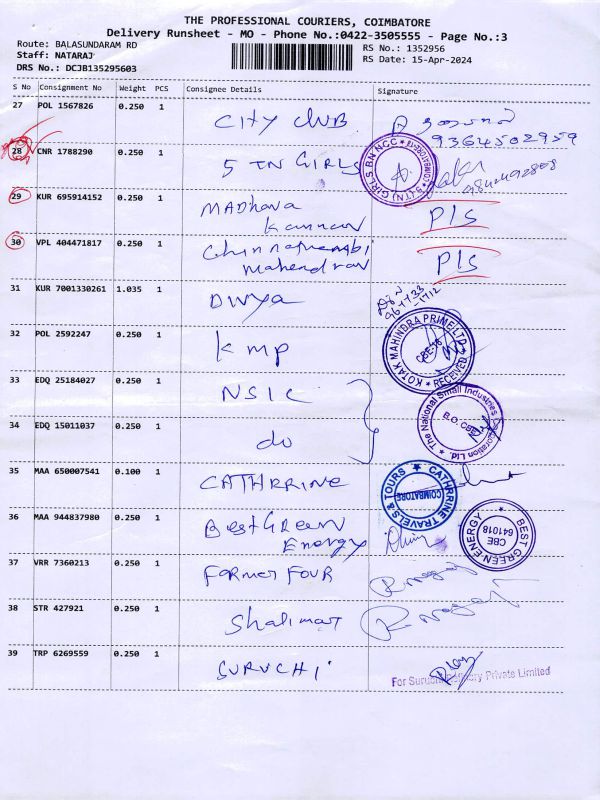 THE PROFESSIONAL COURIERS, COIMBATORE
Delivery Runsheet - MO - Phone No.:0422-3505555 - Page No.:3
Route: BALASUNDARAM RD
RS No.: 1352956
Staff: NATARAJ
RS Date: 15-Apr-2024
DRS No.: DCJB135295603
S No Consignment No Weight PCS Consignee Details Signature
27 POL 1567826 0.250 1 CITY CLUB
9364502959
28 CNR 1788290 0.250 1 5 TN GIRLS
5 (TN) GIRLS BN NCC COIMBATORE
29 KUR 695914152 0.250 1 MADHava Kannan P/S
30 VPL 404471817 0.250 1 Chinnathambi Mahendran P/S
31 KUR 7001330261 1.035 1 DIVYA
32 POL 2592247 0.250 1 KMP
KOTAK MAHINDRA PRIME LTD. CBE-18 RECEIVED
33 EDQ 25184027 0.250 1 NSIC
The National Small Industries Corporation Ltd. B.O. CBE
34 EDQ 15011037 0.250 1 do
35 MAA 650007541 0.100 1 CATHRRINE
CATHRRINE TRAVELS & TOURS COIMBATORE
36 MAA 944837980 0.250 1 Best Green Energy
BEST GREEN ENERGY CBE 641018
37 VRR 7360213 0.250 1 FORMER FOUR
38 STR 427921 0.250 1 Shalimar
39 TRP 6269559 0.250 1 SURUCHI
For Suruchi Private Limited